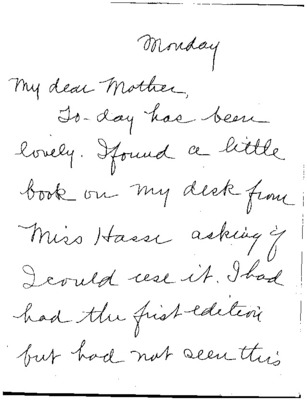 Monday
My dear Mother,
To-day has been
lovely. I found a little
book on my desk from
Miss Hasse asking if
I could use it. I had
had the first edition
but had not seen this